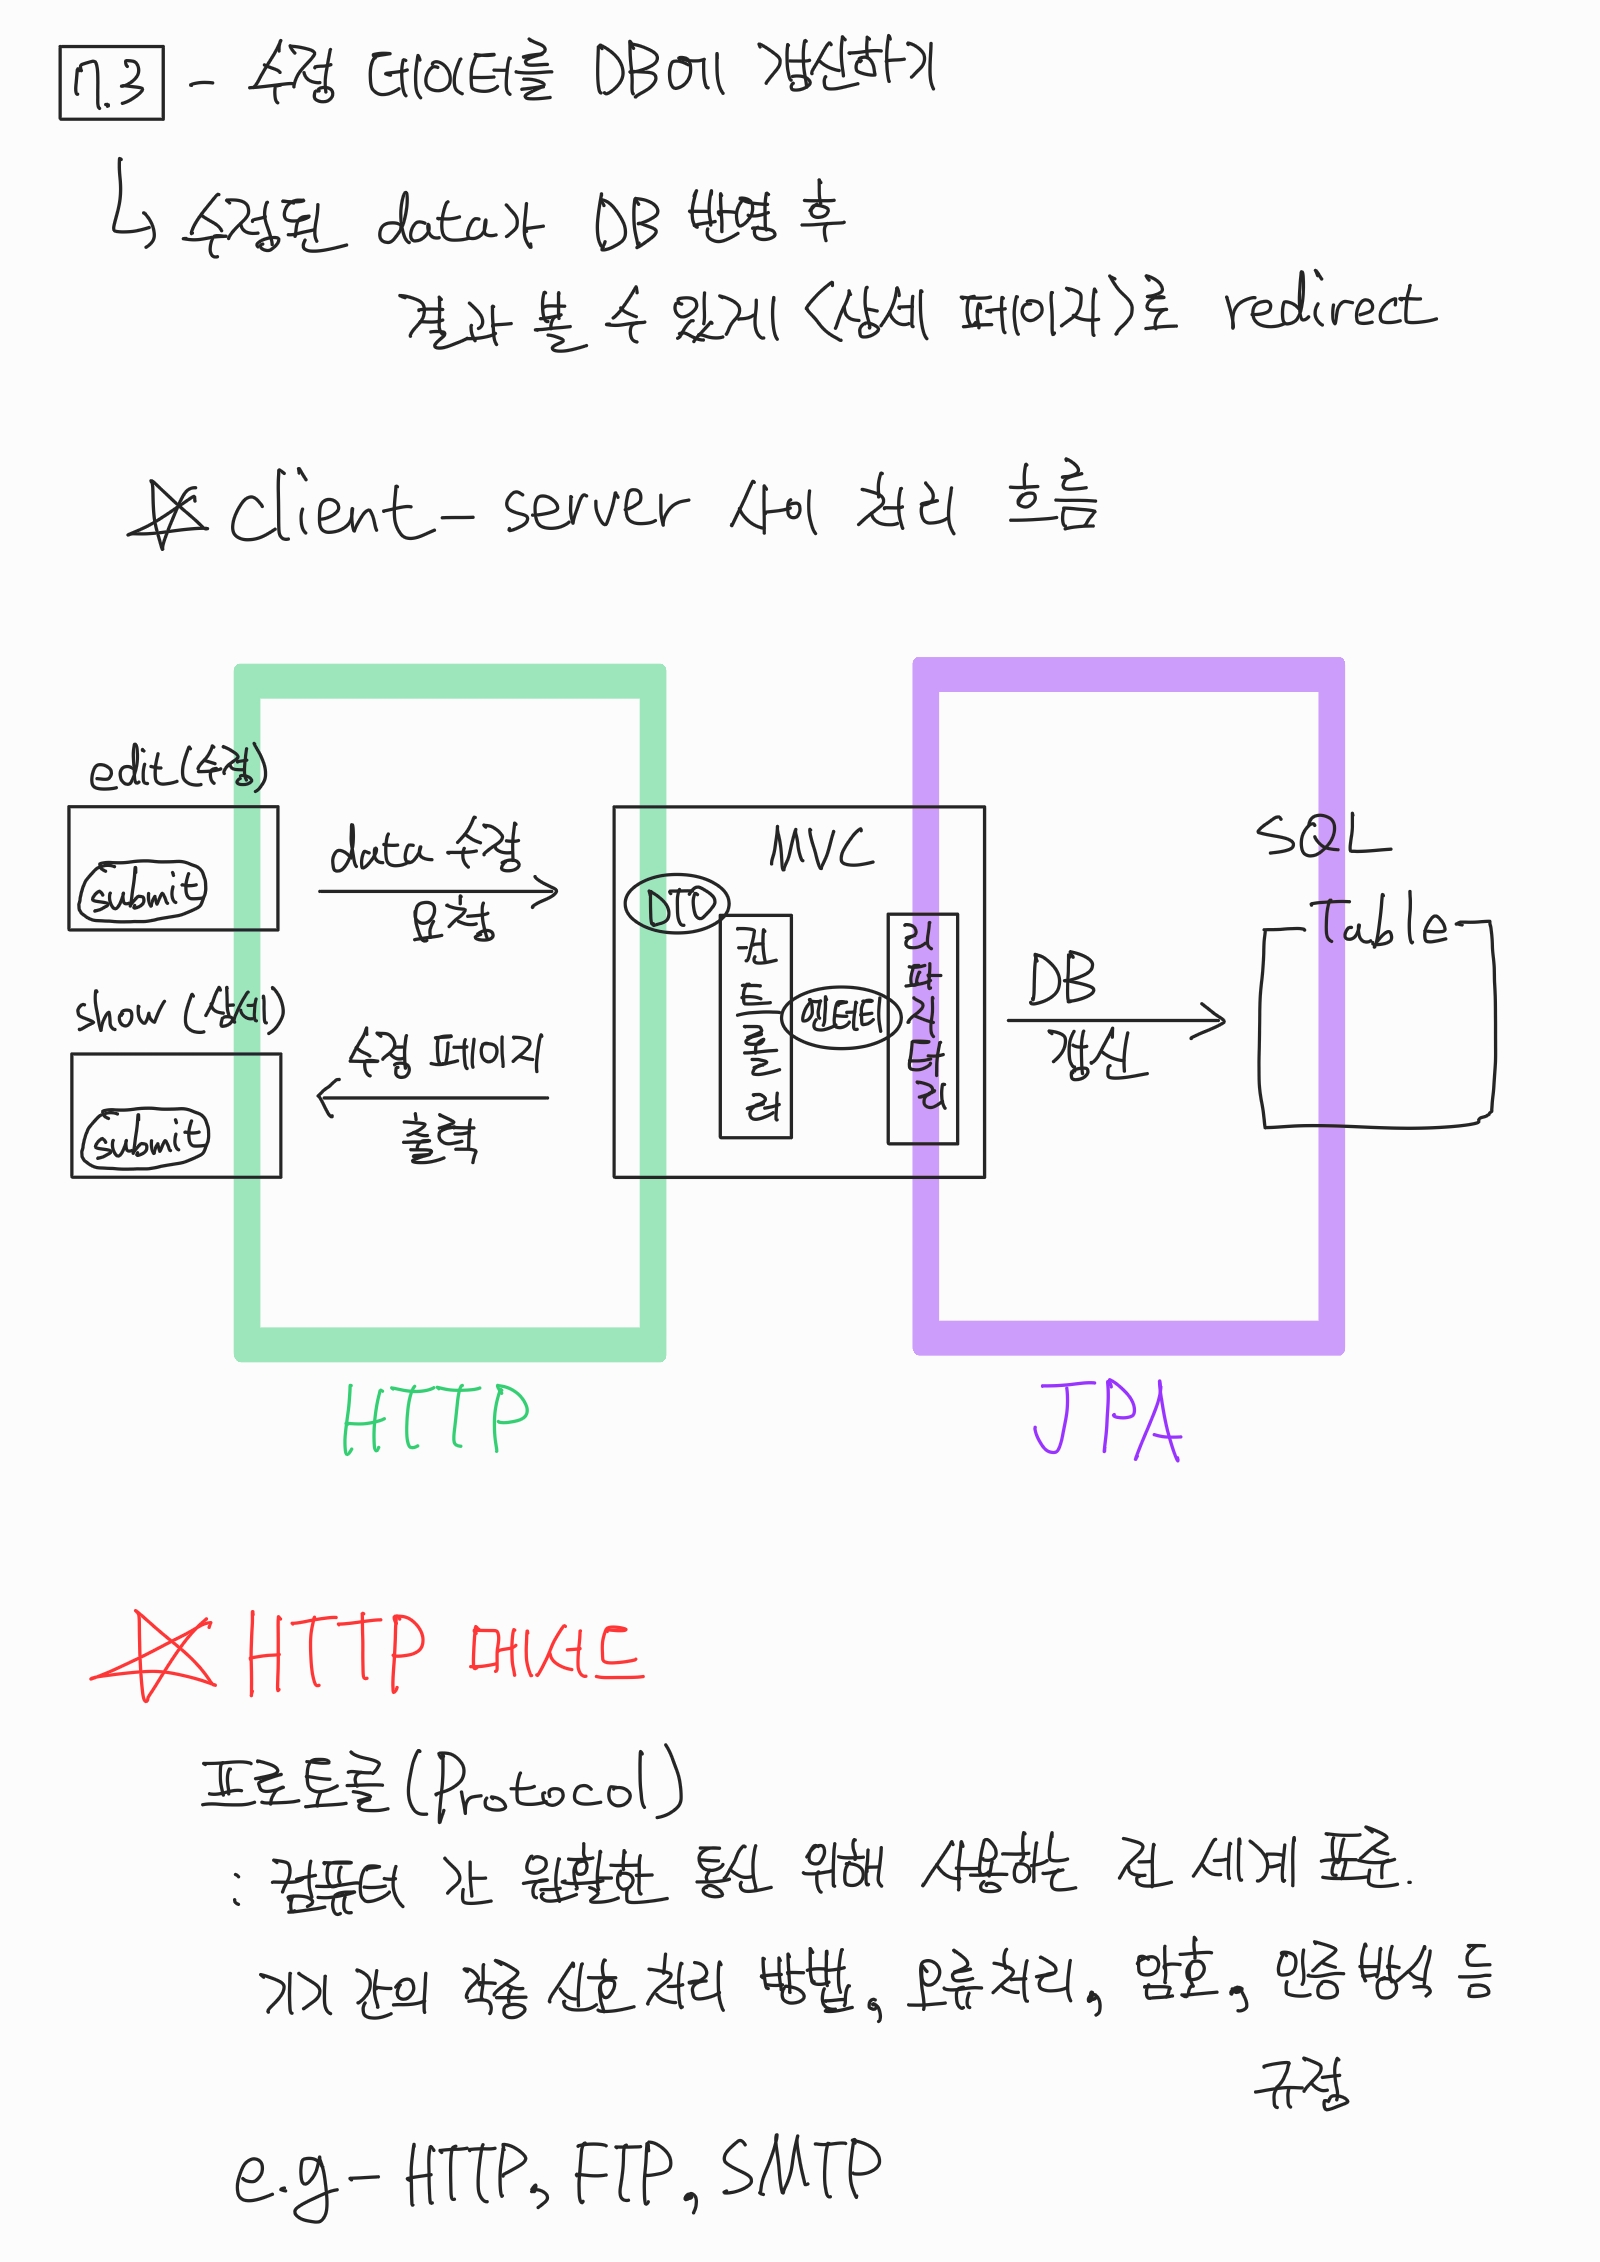 7.3 - 수정 데이터를 DB에 갱신하기
↳ 수정된 data가 DB 반영 후
결과 볼 수 있게 <상세 페이지>로 redirect
☆ client - server 사이 처리 흐름
edit (수정)
submit
data 수정
요청
show (상세)
submit
수정 페이지
출력
MVC
DTO
컨트롤러
엔티티
리파지터리
DB
갱신
SQL
Table
HTTP
JPA
☆ HTTP 메서드
프로토콜 (Protocol)
: 컴퓨터 간 원활한 통신 위해 사용하는 전 세계 표준.
기기 간의 각종 신호 처리 방법, 오류 처리, 암호, 인증 방식 등
규정
e.g - HTTP, FTP, SMTP